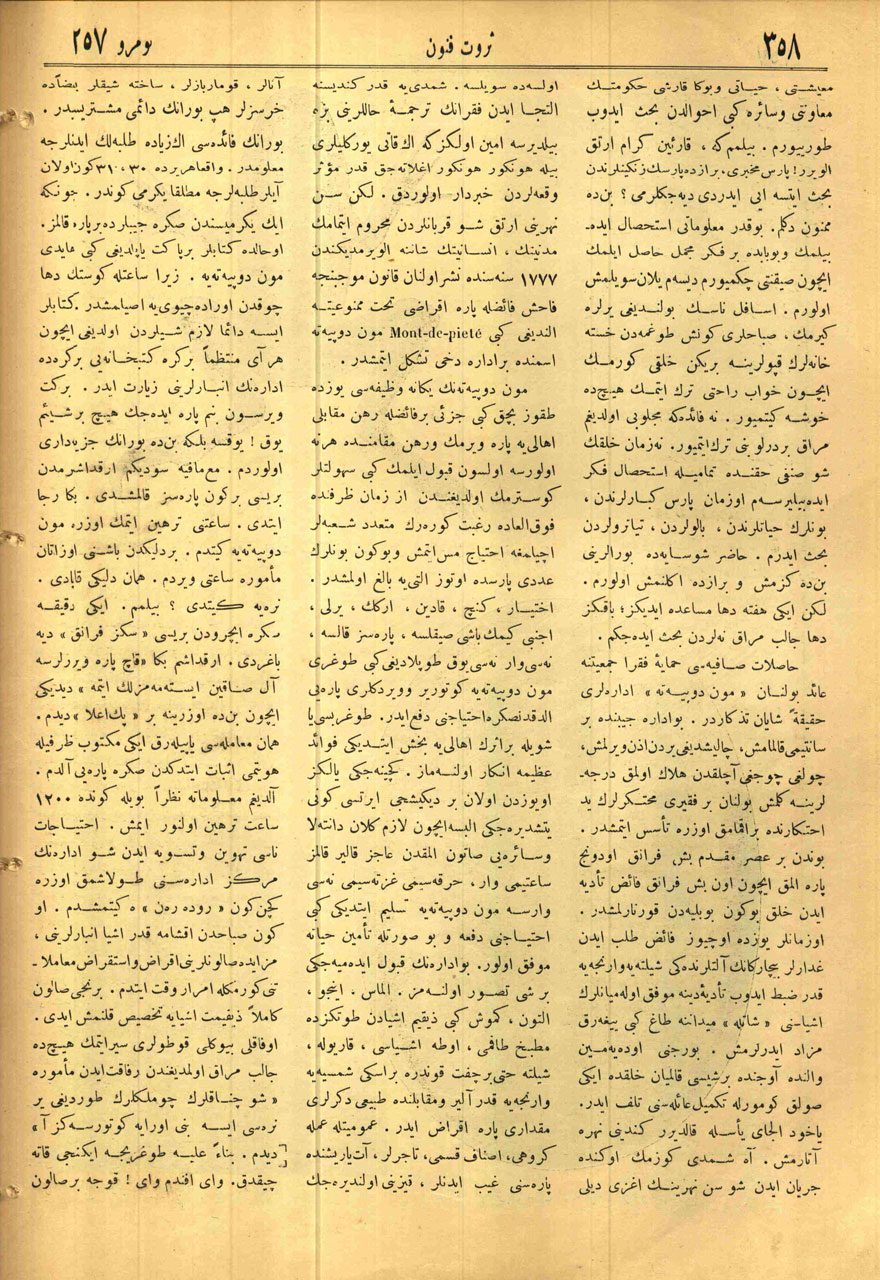 ٣٥٨
ثروت فنون
نومرو ٢٥٧
معیشتی ، حیاتی وبوكا قارشی حكومتك
معاونتی وسائره كبی احوالدن بحث ایدوب
طوریيورم . بیلمم كه ، قارئین كرام ارتق
الویرر! پارس مخبری، برازده پارسك زنكینلرندن
بحث ایتسه ایی ایدردی دیه جكلرمی ؟ بن ده
ممنون دكلم. بوقدر معلوماتی استحصال ایده‌ـ
بیلمك وبوبابده بر فكر مجمل حاصل ایلمك
ایچون صیقنتی چكمیورم دیسه‌م یلان سویلمش
اولورم . اسافل ناسك بولندیغی یرلره
كیرمك، صباحلری كونش طوغمه‌دن خسته
خانه‌لرك قپولرینه بریكن خلقی كورمك
ایچون خواب راحتی ترك ایتمك هیچ ده
خوشه كیتمیور . نه فائده كه مجلوبی اولدیغم
مراق بردرلو بنی ترك ایتمیور. نه زمان خلقك
شو صنفی حقنده تمامیله استحصال فكر
ایده بیلیرسه‌م اوزمان پارس كبارلرندن ،
بونلرك حیاتلرندن ، بالولردن ، تیاترولردن
بحث ایدرم . حاضر شوسایه‌ده بورالرینی
بن ده كزمش و برازده اكلنمش اولورم .
لكن ایكی هفته دها مساعده ایدیكز؛ باقكز
دها جالب مراق نه‌لردن بحث ایده جكم .
حاصلات صافیه‌سی حمایۀ فقرا جمعیتنه
عائد بولنان « مون دوپییه‌ته » اداره‌لری
حقیقةً شایان تذكاردر . بواداره جیبنده بر
سانتیمی قالمامش، چالیشدیغی یردن اذن ویرلمش،
چولغی چوجغی آچلقدن هلاك اولمق درجه‌ـ
لرینه كلمش بولنان بر فقیری محتكرلرك ید
احتكارنده براقمامق اوزره تأسس ایتمشدر .
بوندن بر عصر مقدم بش فرانق اودونج
پاره المق ایچون اون بش فرانق فائض تأدیه
ایدن خلق بوكون بوبلیه‌دن قورتارلمشدر .
اوزمانلر یوزده اوچیوز فائض طلب ایدن
غدارلر بیچاركانك آلتلرنده‌كی شیلته‌یه وارنجه‌یه
قدر ضبط ایدوب تأدیۀ دینه موفق اوله میانلرك
اشیاسنی « شاتله » میداننه طاغ كبی ییغه‌رق
مزاد ایدرلرمش . بورجنی اوده‌یه‌مین
والنده آوجنده برشیسی قالمیان خلقده ایكی
صولق كومورله تكمیل عائله‌سنی تلف ایدر.
یاخود الجای یأسله قالدیرر كندینی نهره
آتارمش . آه شمدی كوزمك اوكنده
جریان ایدن شو سن نهرینك اغزی دیلی
اولسه‌ده سویلسه . شمدی‌یه قدر كندیسنه
التجا ایدن فقرانك ترجمۀ حاللرینی بزه
بیلدیرسه امین اولكز كه اك قاتی یوركلیلری
بیله هونكور هونكور اغلاته‌جق قدر مؤثر
وقعه‌لردن خبردار اولوردق . لكن سن
نهرینی ارتق شو قربانلردن محروم ایتمامك
مدنیتك ، انسانیتك شاننه الویرمدیكندن
١٧٧٧ سنه سنده نشر اولنان قانون موجبنجه
فاحش فائضله پاره اقراضی تحت ممنوعیته
الندیغی كبی Mont-de-pieté مون دوپییه‌ته
اسمنده براداره دخی تشكل ایتمشدر .
مون دوپییه‌ته‌نك یكانه وظیفه‌سی یوزده
طقوز بچق كبی جزئی بر فائضله رهن مقابلی
اهالی‌یه پاره ویرمك ورهن مقامنده هر نه
اولورسه اولسون قبول ایلمك كبی سهولتلر
كوسترمك اولدیغندن از زمان ظرفنده
فوق العاده رغبت كوره‌رك متعدد شعبه‌لر
اچیلمغه احتیاج مس ایتمش وبوكون بونلرك
عددی پارسده اوتوز التی‌یه بالغ اولمشدر .
اختیار ، كنج ، قادین ، ارككـ ، یرلی ،
اجنبی كیمك باشی صیقلسه ، پاره‌سز قالسه ،
نه‌سی وار نه‌سی یوق طوپلادیغی كبی طوغری
مون دوپییه‌ته‌یه كوتوریر وویردكلری پاره‌یی
الدقدنصكره احتیاجنی دفع ایدر. طوغریسی یا
شویله براثرك اهالی‌یه بخش ایتدیكی فوائد
عظیمه انكار اولنه‌ماز . كچینه‌جكی یالكز
اوبوزدن اولان بر دیكیشجی ایرتسی كونی
یتشدیره‌جكی البسه ایچون لازم كلان دانته‌لا
وسائره‌یی صاتون المقدن عاجز قالیر قالمز
ساعتیمی وار، حرقه‌سیمی غزته‌سیمی نه‌سی
وارسه مون دوپییه‌ته‌یه تسلیم ایتدیكی كبی
احتیاجنی دفعه و بو صورتله تأمین حیاته
موفق اولور. بواداره‌نك قبول ایده‌میه‌جكی
بر شی تصور اولنه‌مز . الماس . اینجو ،
التون ، كموش كبی ذیقیم اشیادن طوتكزده
مطبخ طاقمی ، اوطه اشیاسی ، قاریوله ،
شیلته حتی برجفت قوندره براسكی شمسیه‌یه
وارنجه‌یه قدر آلیر ومقابلنده طبیعی دكرلری
مقداری پاره اقراض ایدر . عمومیتله عمله
كروهی، اصناف قسمی، تاجرلر، آت یاریشنده
پاره‌سنی غیب ایدنلر ، قیزینی اولندیره‌جك
آنالر ، قوماربازلر ، ساخته شیقلر بضاًده
خرسزلر هپ بورانك دائمی مشتریسیدر .
بورانك فائده‌سی اك زیاده طلبه‌لك ایدنلرجه
معلومدر. واقعا هر برده ٣٠ ، ٣١ كون اولان
آیلر طلبه‌لرجه مطلقا یكرمی كوندر. چونكه
ایك یكرمیسندن صكره جیبلرده بر پاره قالمز.
اوحالده كتابلر بر پاكت یاپلدیغی كبی هایدی
مون دوپییه‌ته‌یه . زیرا ساعتله كوستك دها
چوقدن اوراده چیوی‌یه اصیلمشدر. كتابلر
ایسه دائما لازم شیلردن اولدیغی ایچون
هر آی منتظماً بركره كتبخانه‌یی بركره‌ده
اداره‌نك انبارلرینی زیارت ایدر . بركت
ویرسون بنم پاره ایده‌جك هیچ برشیئم
یوق ! یوقسه بلكه بن ده بورانك جزیه‌داری
اولوردم . مع مافیه سودیكم ارقداشلرمدن
بریسی بركون پاره‌سز قالمشدی . بكا رجا
ایتدی . ساعتنی ترهین ایتمك اوزره مون
دوپییه‌ته‌یه كیتدم . بر دلیكدن باشنی اوزاتان
مأموره ساعتی ویردم . همان دلیكی قاپادی .
نره‌یه كیتدی ؟ بیلمم . ایكی دقیقه
صكره ایچرودن بریسی « سكز فرانق » دیه
باغردی . ارقداشم بكا «قاچ پاره ویررلرسه
آل صاقین ایسته‌مه‌مزلك ایتمه » دیدیكی
ایچون بن ده اوزرینه بر « پك اعلا » دیدم .
همان معامله‌سی یاپیله‌رق ایكی مكتوب ظرفیله
هویتمی اثبات ایتدكدن صكره پاره‌یی آلدم .
آلدیغم معلوماته نظراً بویله كونده ١٢٠٠
ساعت ترهین اولنور ایمش . احتیاجات
ناسی تهوین وتسویه ایدن شو اداره‌نك
مركز اداره‌سنی طولاشمق اوزره
كچن كون « روده ره‌ن » ه كیتمشدم . او
كون صباحدن اقشامه قدر اشیا انبارلرینی ،
مزایده صالونلرینی اقراض واستقراض معاملاـ
تنی كورمكله امرار وقت ایتدم . برنجی صالون
كاملاً ذیقیمت اشیایه تخصیص قلنمش ایدی .
اوفاقلی بیوكلی قوطولری سیر ایتمك هیچ ده
جالب مراق اولمدیغندن رفاقت ایدن مأموره
« شو چناقلرك چوملكلرك طوردیغی یر
نره‌سی ایسه بنی اورایه كوتورسه‌كز آ»
دیدم . بناءً علیه طوغریجه ایكنجی قاته
چیقدق. وای افندم وای ! قوجه بر صالون